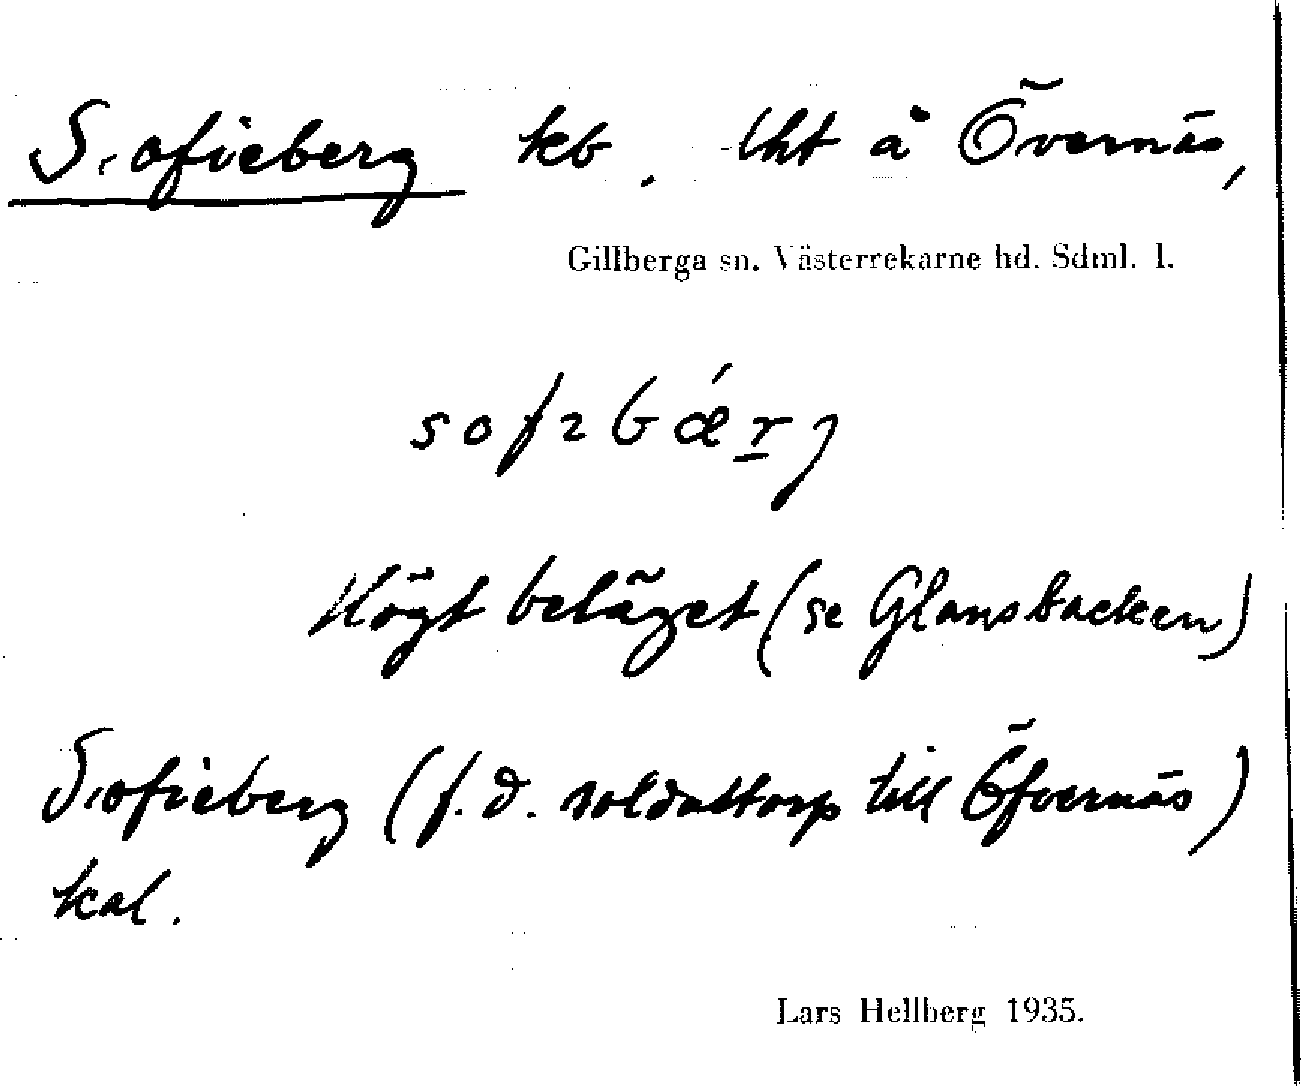 Sofieberg kb. lht å Övernäs,
Gillberga sn. Västerrekarne hd. Sdml. l.
sofɩbǽrj
Högt beläget (se Glansbacken)
Sofieberg (f.d. soldattorp till Öfvernäs)
kal.
Lars Hellberg 1935.